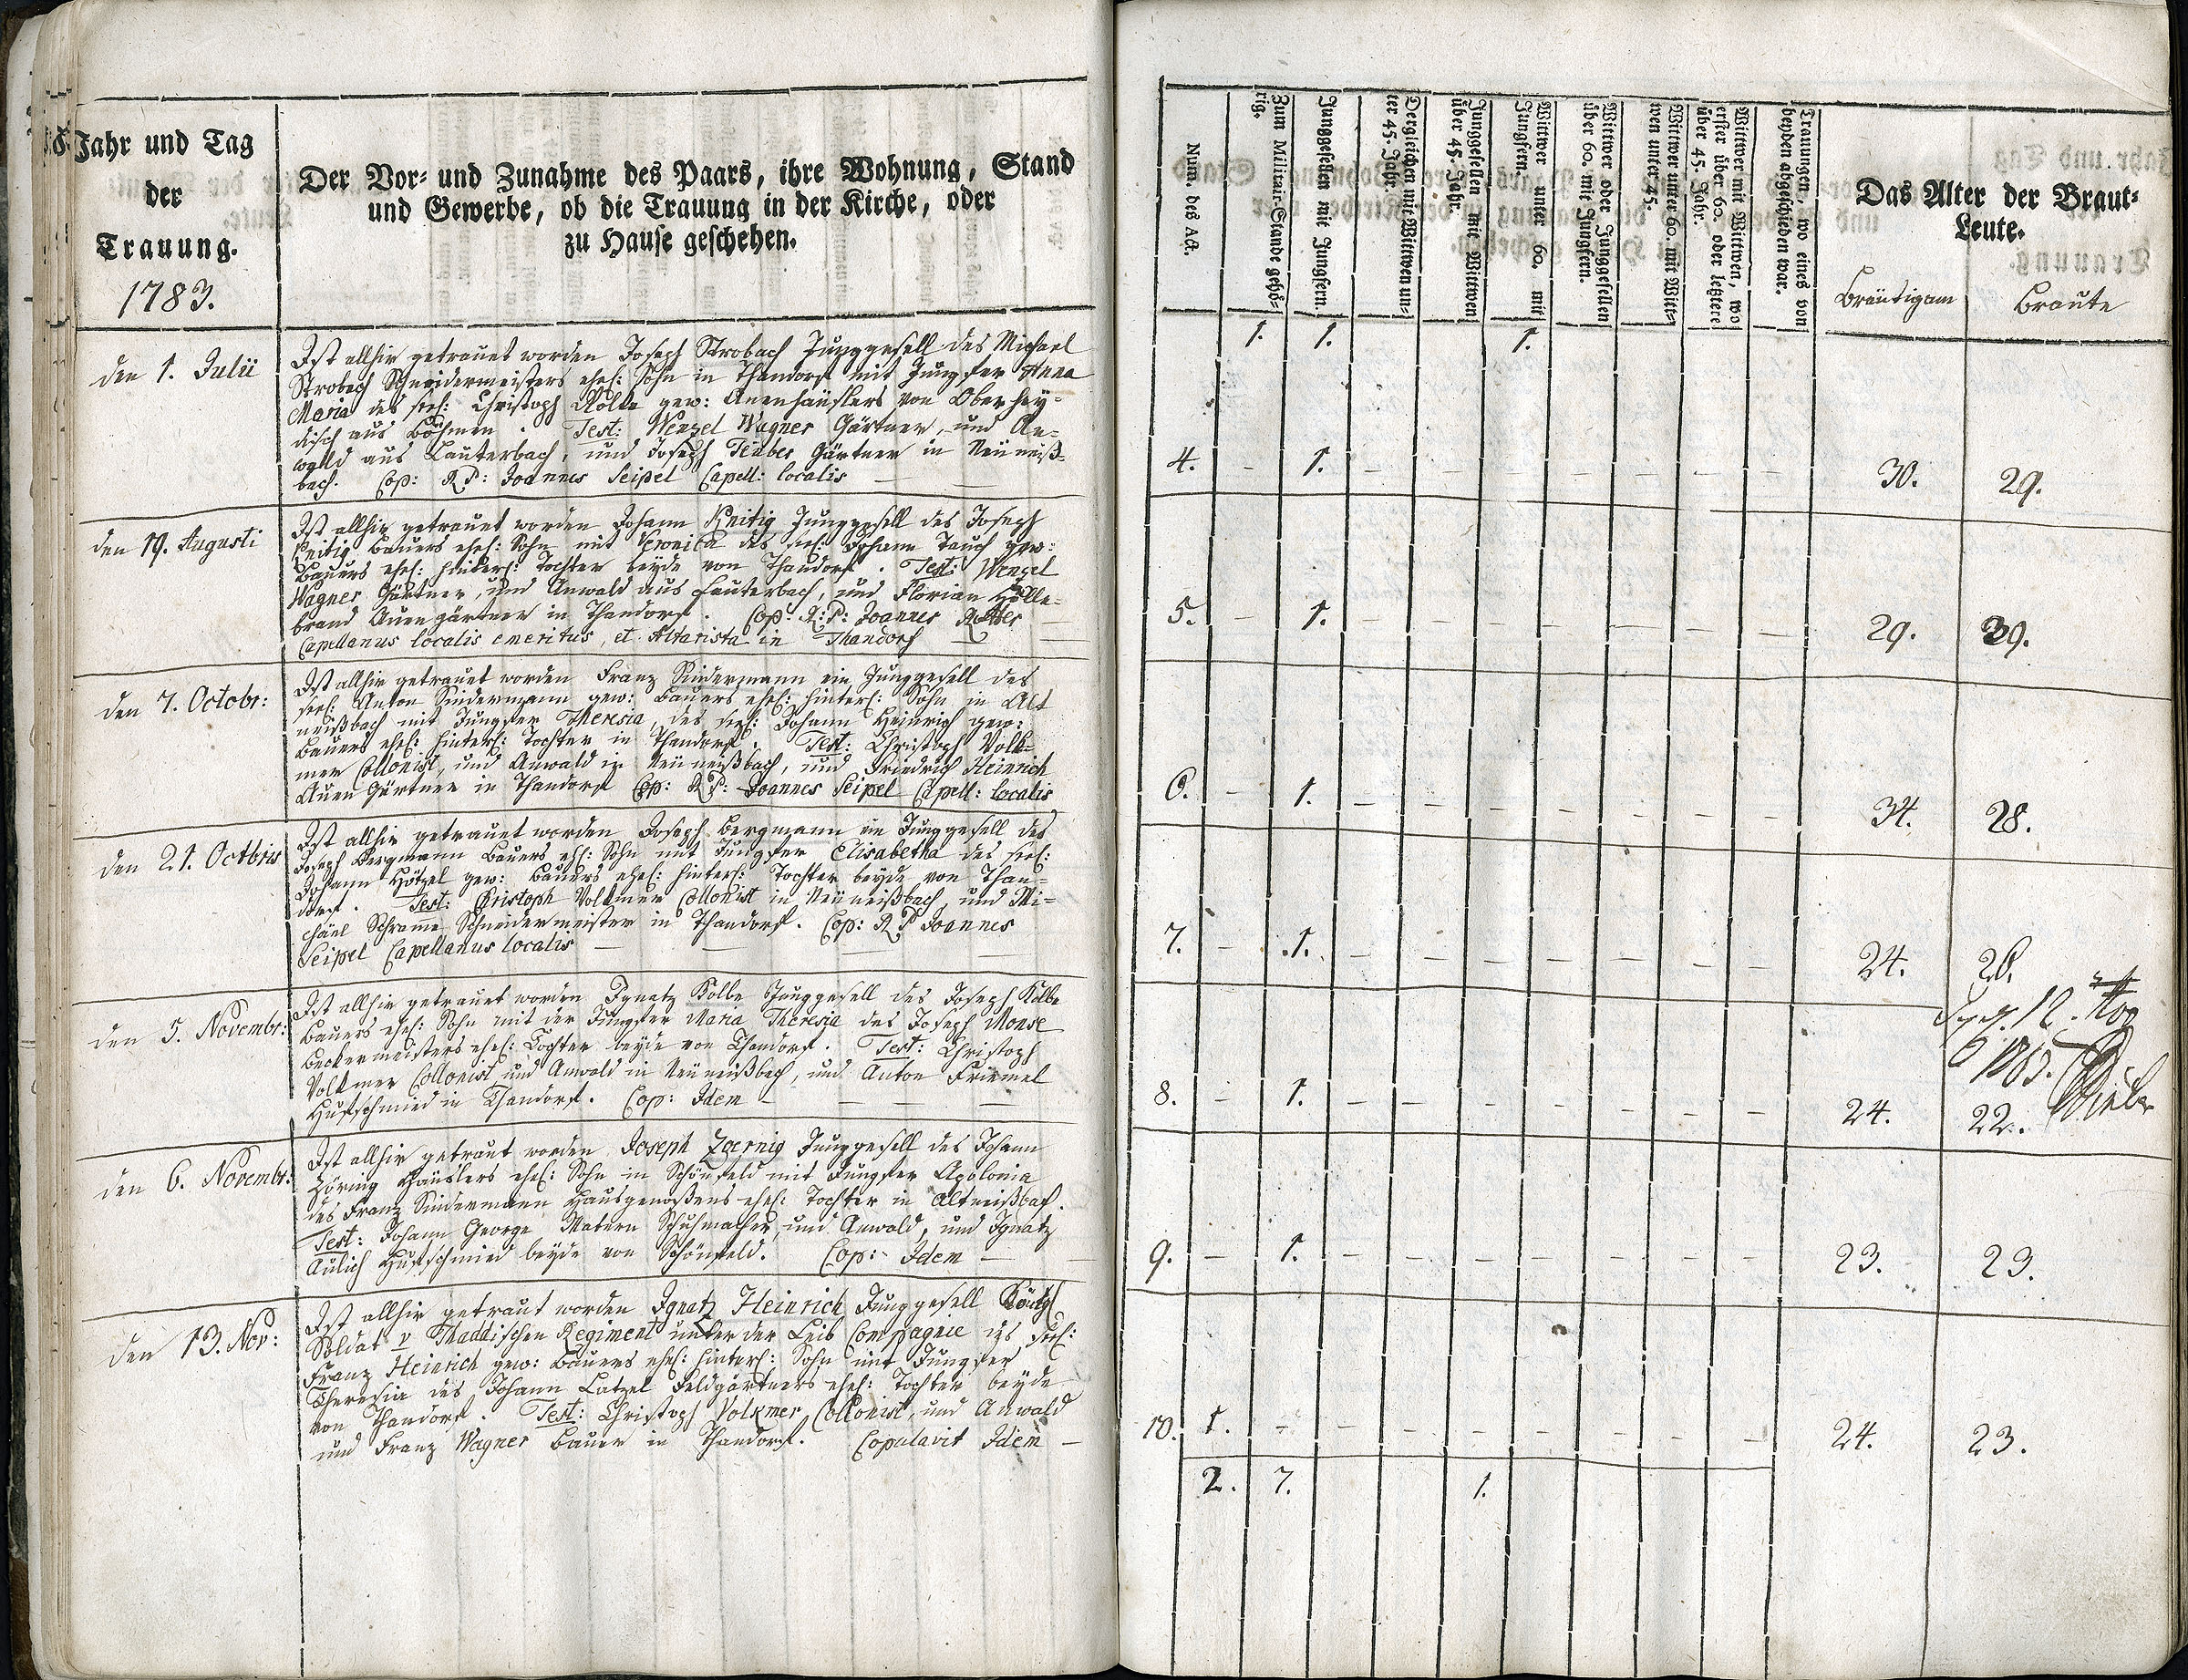 Jahr und Tag
der
Trauung.
1783.
Der Vor- und Zunahme des Paars, ihre Wohnung, Stand
und Gewerbe, ob die Trauung in der Kirche, oder
zu Hause geschehen.
den 1. Julii
Ist allhir getrauet worden Joseph Strobach Junggesell des Michael
Strobach Schneidermeisters ehel: Sohn in Thandorf mit Jungfer Anna
Maria des seel: Christoph gew: Auenhäuslers von Oberhey-
disch aus Böhmen. Test: Wenzel Wagner Gärtner, und An-
wald aus Lauterbach, und Joseph Teuber Gärtner in Neuneiß-
bach. Cop: R P: Joannes Seipel Capell: localis
den 19. Augusti
Ist allhir getrauet worden Johann Kneitig Junggesell des Joseph
Kneitig Bauers ehel: Sohn mit Veronica des seel: Johann Tauch gew:
Bauers ehel: hinterl: Tochter beyde von Thandorf. Test: Wenzel
Wagner Gärtner, und Anwald aus Lauterbach, und Florian Hille-
brand Auengärtner in Thandorf. Cop: R: P: Joannes
Capellanus localis emeritus, et Altarista in Thandorf
den 7. Octobr:
Ist allhir getrauet worden Franz Sindermann ein Junggesell des
seel: Anton Sindermann gew: Bauers ehel: hinterl: Sohn in Alt
neißbach mit Jungfer Theresia, des seel: Johann Heinrich gew:
Bauers ehel: hinterl: Tochter in Thandorf. Test: Christoph Volk-
mer Collonist, und Anwald in Neuneißbach, und Friedrich Heinrich
Auen Gärtner in Thandorf Cop: R P: Joannes Seipel Capell: localis
den 21. Octbris
Ist allhir getrauet worden Joseph Bergmann ein Junggesell des
Joseph Bergmann Bauers ehl: Sohn mit Jungfer Elisabetha des seel:
Johann Hötzel gew: Bauers ehel: hinterl: Tochter beyde von Than-
dorf. Test: Christoph Volkmer Collonist in Neuneißbach, und Mi-
chäel Schramme Schneidermeister in Thandorf. Cop: R P Joannes
Seipel Capellanus localis
den 5. Novembr:
Ist allhir getrauet worden Ignatz Kolbe Junggesell des Joseph Kolbe
Bauers ehel: Sohn mit der Jungfer Maria Theresia des Joseph Monse
Beckermeisters ehel: Tochter beyde von Thandorf. Test: Christoph
Volkmer Collonist und Anwald in Neuneißbach, und Anton Friemel
Hufschmied in Thandorf. Cop: Idem
den 6. Novembr:
Ist allhir getraut worden Joseph Zoernig Junggesell des Johann
Höring Häuslers ehel: Sohn in Schönfeld mit Jungfer Apolonia
des Franz Sindermann Hausgenoßens ehel: Tochter in Altneißbach.
Test: Johann George Matern Schuhmacher, und Anwald, und Ignatz
Aulich Hufschmied beyde von Schönfeld. Cop: Idem
den 13. Nov:
Ist allhir getraut worden Ignatz Heinrich Junggesell Königl
Soldat v Thaddischen Regiment unter der Leib Compagnie des seel:
Franz Heinrich gew: Bauers ehel: hinterl: Sohn mit Jungfer
Theresia des Johann Latzel Feldgärtners ehel: Tochter beyde
von Thandorf. Test: Christoph Volkmer Collonist, und Anwald
und Franz Wagner Bauer in Thandorf. Copulavit Idem
Num. des Act.
Zum Militair-Stande gehö-
rig.
Junggesellen mit Jungfern.
Dergleichen mit Wittwen un-
ter 45. Jahr.
Junggesellen mit Wittwen
über 45. Jahr.
Wittwer unter 60. mit
Jungfern.
Wittwer oder Junggesellen
über 60. mit Jungfern.
Wittwer unter 60. mit Witt-
wen unter 45.
Wittwer mit Wittwen, wo
erster über 60. oder letztere
über 45. Jahr.
Trauungen, wo eines von
beyden abgeschieden war.
Das Alter der Braut-
Leute.
Bräutigam
Braute
1. 1. 1.
4. – 1. – – – – – – – 30. 29.
5. – 1. – – – – – – – 29. 39.
6. – 1. – – – – – – – 34. 28.
7. – 1. – – – – – – – 24. 26.
8. – 1. – – – – – – – 24. 22.
9. – 1. – – – – – – – 23. 23.
10. 1. – – – – – – – – 24. 23.
2. 7. 1.